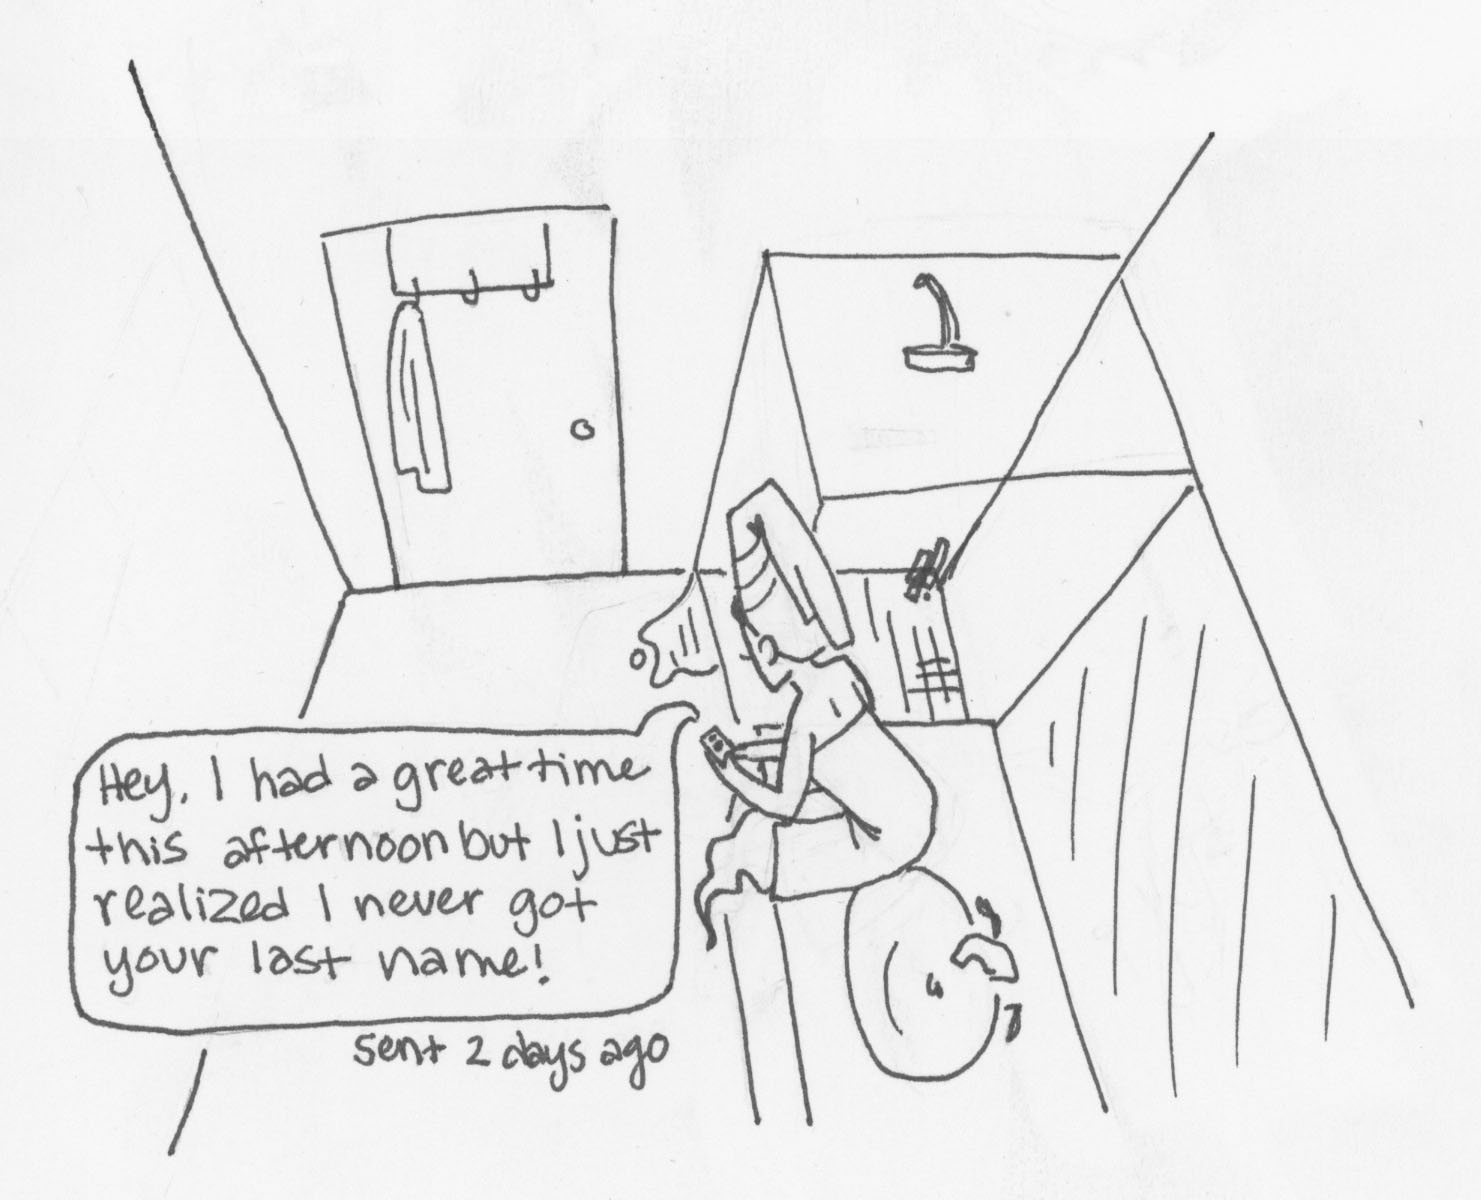 Hey, I had a great time
this afternoon but I just
realized I never got
your last name!
sent 2 days ago